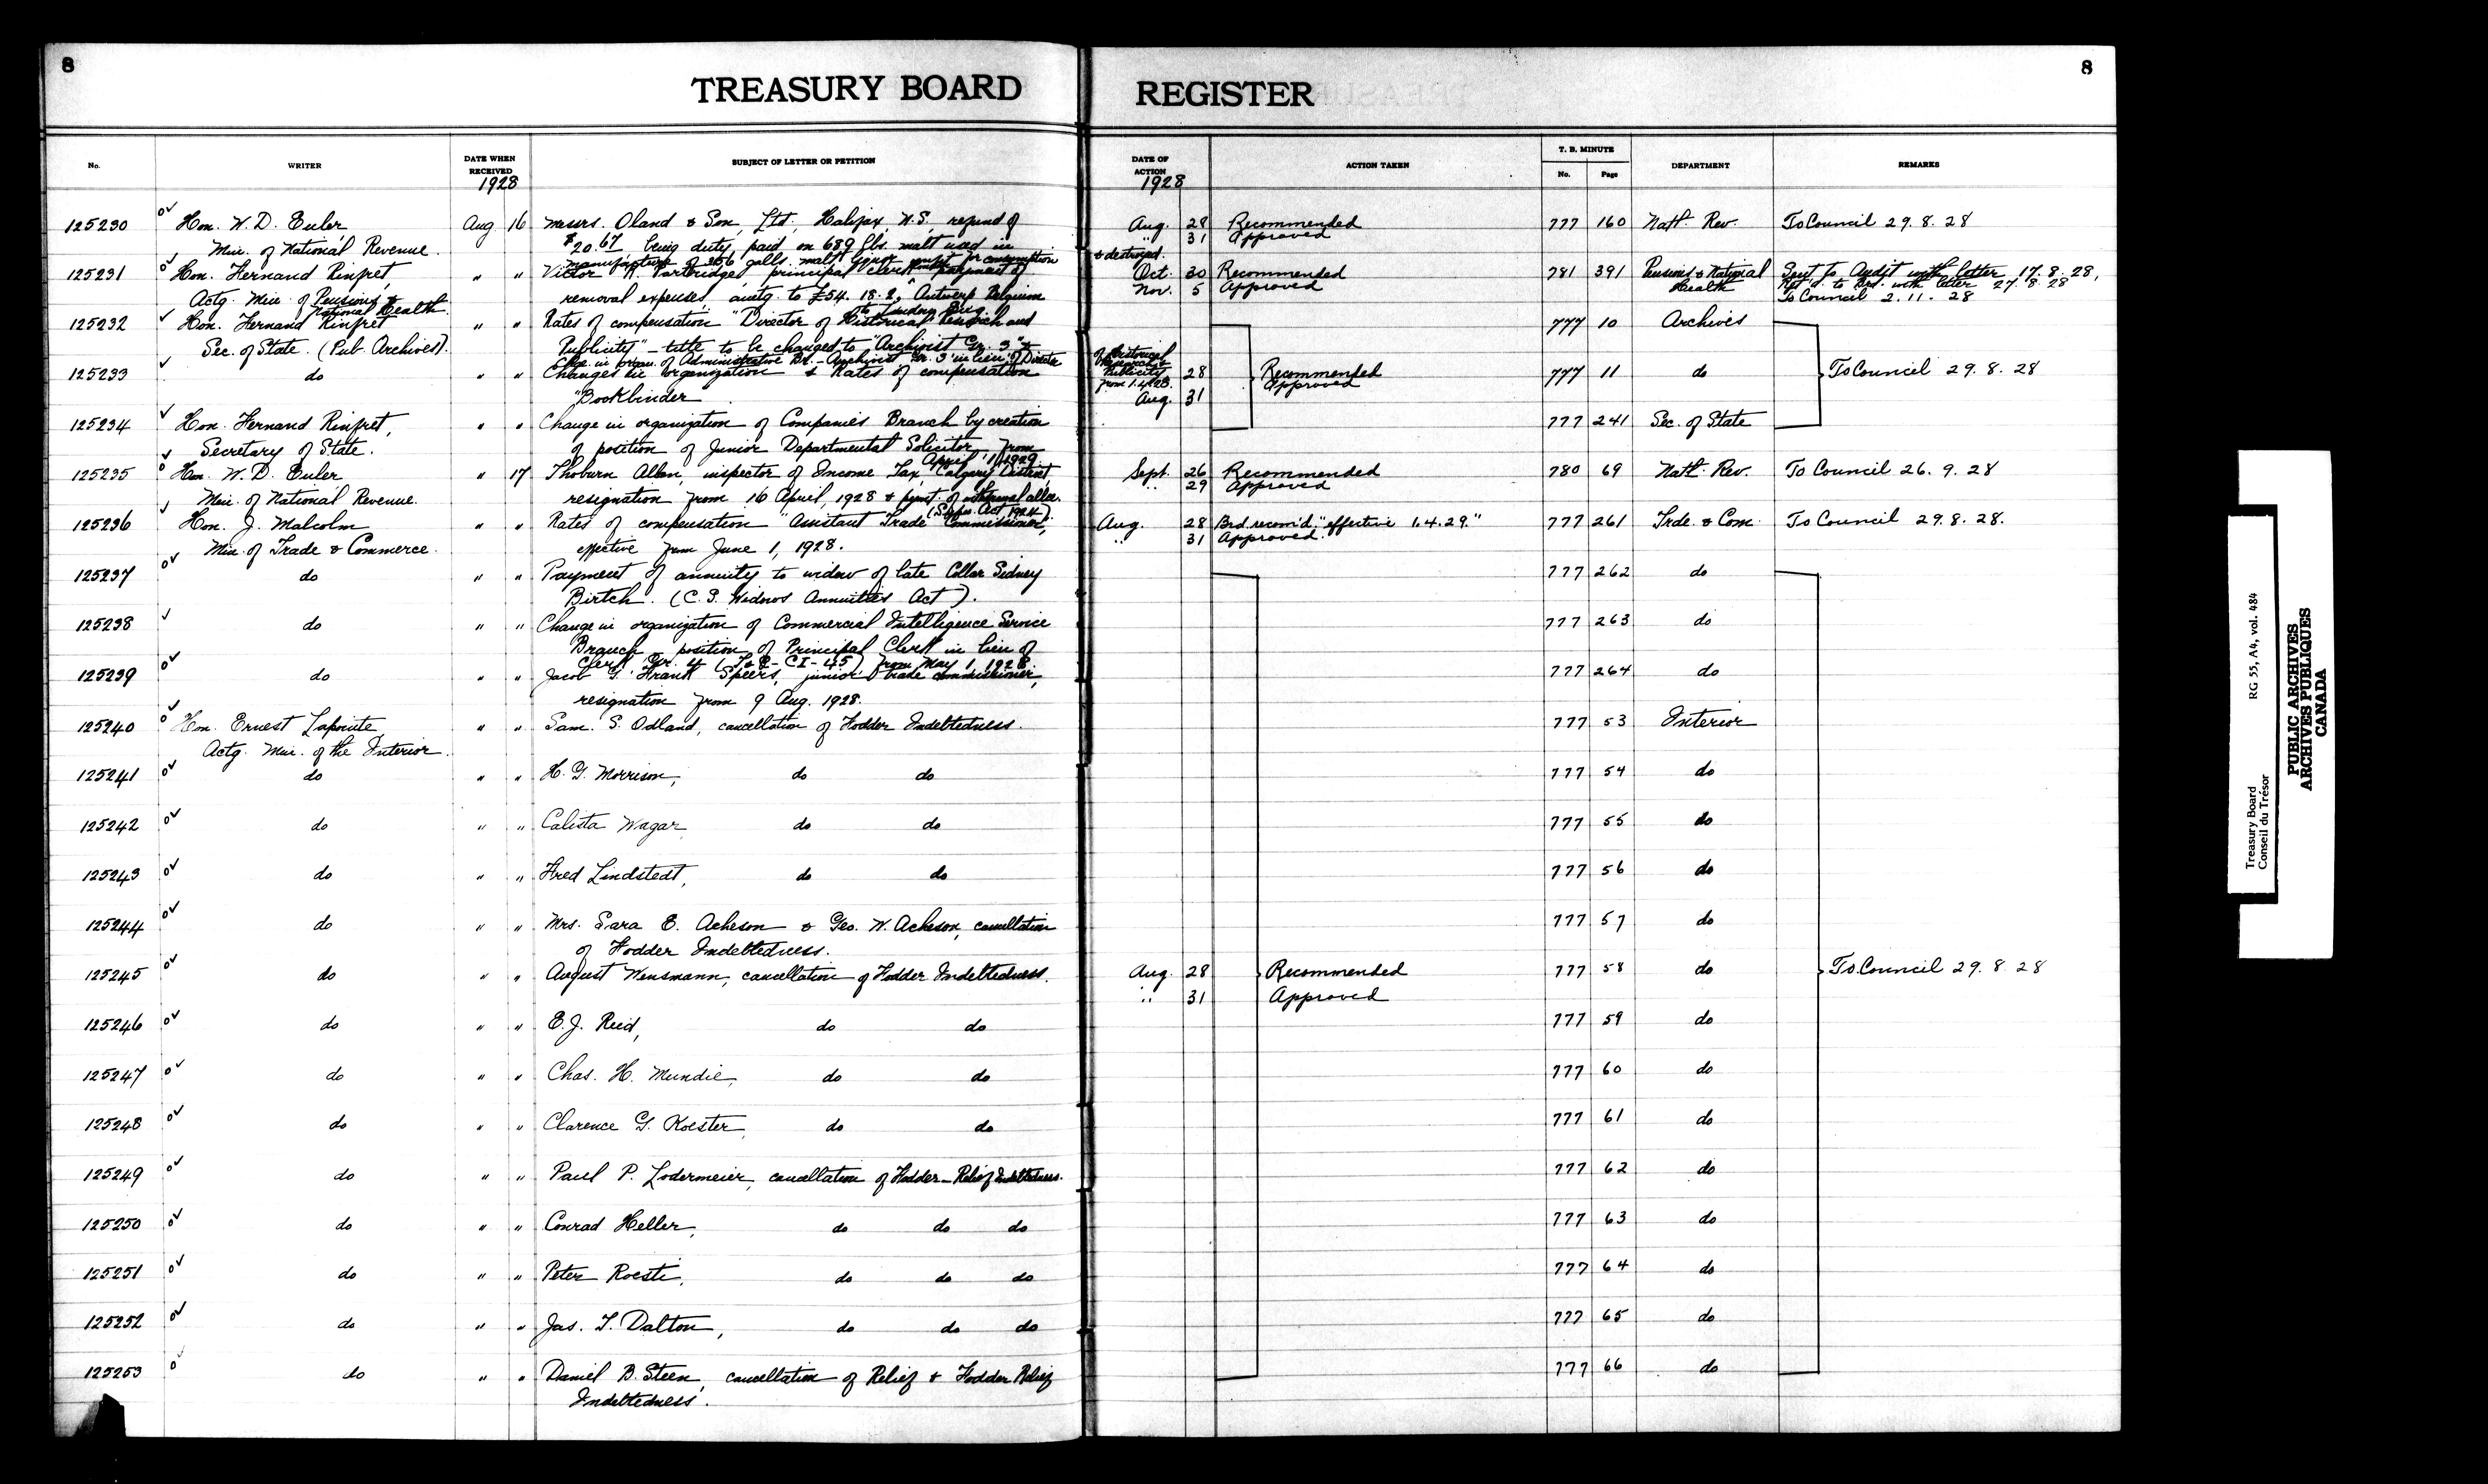 8
TREASURY BOARD REGISTER
8
No. WRITER DATE WHEN RECEIVED SUBJECT OF LETTER OR PETITION DATE OF ACTION ACTION TAKEN T. B. MINUTE No. Page DEPARTMENT REMARKS
1928 1928
125230 Hon. W. D. Euler Aug 16 Messrs. Oland & Son, Ltd, Halifax, N.S., refund of Aug. 28 Recommended 777 160 Natl. Rev. To Council 29.8.28
Min. of National Revenue. $20.67 being duty paid on 689 lbs. malt used in " 31 Approved
manufacture of 356 galls. malt unfit for consumption & destroyed.
125231 Hon. Hernand Rinfret, " " Victor A. Partridge, principal clerk, payment of Oct. 30 Recommended 781 391 Pensions & National Health Sent to Audit with letter 17.8.28,
Actg. Min. of Pensions & National Health. removal expenses, amtg. to £54.18.2, Antwerp Belgium to London Eng. Nov. 5 Approved Ret'd. to Brd. with letter 27.8.28
To Council 2.11.28
125232 Hon. Hernand Rinfret " " Rates of compensation "Director of Historical Research and 777 10 Archives
Sec. of State. (Pub. Archives). Publicity" - title to be changed to "Archivist Gr. 3" &
Chge. in organ. of Administrative Br. - Archivist Gr. 3 in lieu of Director of Historical Research & Publicity from 1.4.28.
125233 do " " Changes in organization & Rates of compensation 28 Recommended 777 11 do To Council 29.8.28
"Bookbinder Aug. 31 Approved
125234 Hon. Hernand Rinfret, " " Change in organization of Companies Branch by creation 777 241 Sec. of State
Secretary of State. of position of Junior Departmental Solicitor, from April 1, 1929
125235 Hon. W. D. Euler " 17 Thoburn Allan, inspector of Income Tax, Calgary District, Sept. 26 Recommended 780 69 Natl. Rev. To Council 26.9.28
Min. of National Revenue. resignation from 16 April, 1928 & pymt. of withdrawal allce. (Supn. Act 1924) " 29 Approved
125236 Hon. J. Malcolm " " Rates of compensation "Assistant Trade Commissioner, Aug. 28 Brd. recom'd, "effective 1.4.29." 777 261 Trde. & Com. To Council 29.8.28.
Min. of Trade & Commerce. effective from June 1, 1928. " 31 Approved.
125237 do " " Payment of annuity to widow of late Collar Sidney 777 262 do
Birtch. (C.S. Widows Annuities Act).
125238 do " " Change in organization of Commercial Intelligence Service 777 263 do
Branch - position of Principal Clerk in lieu of
Clerk Gr. 4 (T&C-CI-45) from May 1, 1928
125239 do " " Jacob G. Frank Speers, junior trade commissioner, 777 264 do
resignation from 9 Aug. 1928.
125240 Hon. Ernest Lapointe " " Sam. S. Odland, cancellation of Fodder Indebtedness. 777 53 Interior
Actg. Min. of the Interior.
125241 do " " H. G. Morrison, do do 777 54 do
125242 do " " Calista Wagar, do do 777 55 do
125243 do " " Fred Lindstedt, do do 777 56 do
125244 do " " Mrs. Sara E. Acheson & Geo. W. Acheson, cancellation 777 57 do
of Fodder Indebtedness.
125245 do " " August Wensmann, cancellation of Fodder Indebtedness. Aug. 28 Recommended 777 58 do To Council 29.8.28
" 31 Approved
125246 do " " E. J. Reid, do do 777 59 do
125247 do " " Chas. H. Mundie, do do 777 60 do
125248 do " " Clarence G. Koester, do do 777 61 do
125249 do " " Paul P. Lodermeier, cancellation of Fodder-Relief Indebtedness. 777 62 do
125250 do " " Conrad Heller, do do do 777 63 do
125251 do " " Peter Roesti, do do do 777 64 do
125252 do " " Jas. T. Dalton, do do do 777 65 do
125253 do " " Daniel B. Steen, cancellation of Relief & Fodder Relief 777 66 do
Indebtedness.
Treasury Board RG 55, A4, vol. 484
Conseil du Trésor
PUBLIC ARCHIVES
ARCHIVES PUBLIQUES
CANADA